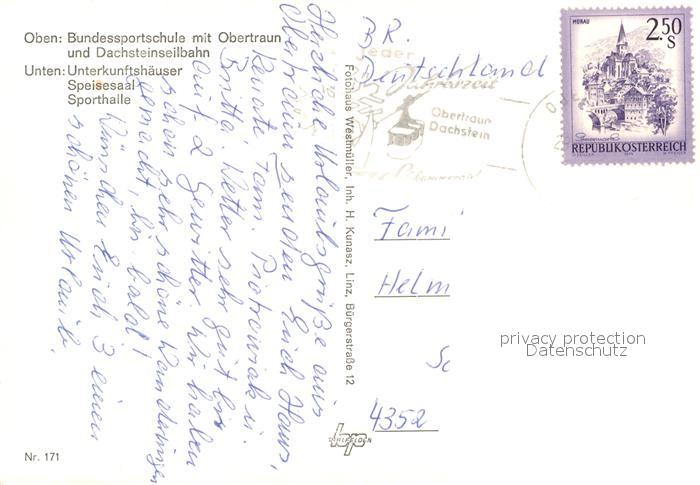 Oben: Bundessportschule mit Obertraun
und Dachsteinseilbahn
Unten: Unterkunftshäuser
Speisesaal
Sporthalle
Herzliche Urlaubsgrüße aus
Obertraun senden Euch Hans,
Renate, Fam. u.
Britta. Wetter sehr gut bis
auf 2 Gewitter. Wir haben
schon sehr schöne Wanderungen
gemacht, bis bald!
Wünschen Euch 3 einen
schönen Urlaub.
Nr. 171
Fotohaus Westmüller, Inh. H. Kunasz, Linz, Bürgerstraße 12
B.R.
Deutschland
Jeder
Jahreszeit
Obertraun
Dachstein
MURAU
2.50
S
REPUBLIK ÖSTERREICH
Fami
Helm
Sc
4352
privacy protection
Datenschutz